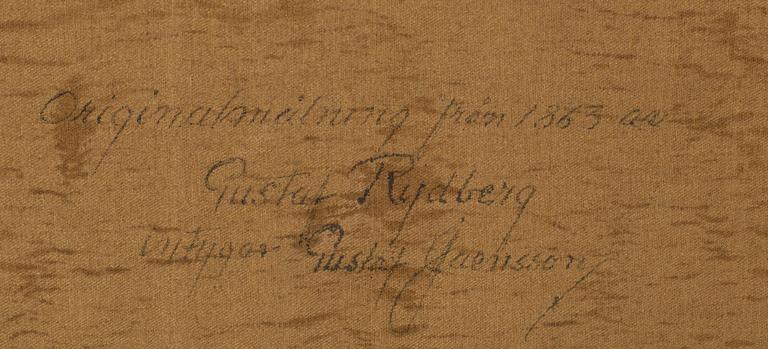 Originalmålning från 1863 av
Gustaf Rydberg
intygar Gustaf